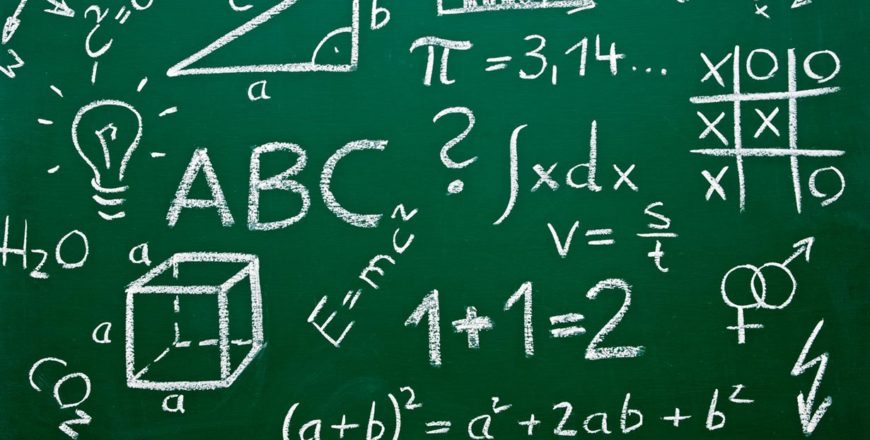 c b
a
π = 3,14...
X O O
X X
X O
?
ABC
∫xdx
v = s/t
H₂O
a
a
a
E=mc²
1+1=2
CO₂
(a+b)² = a² + 2ab + b²